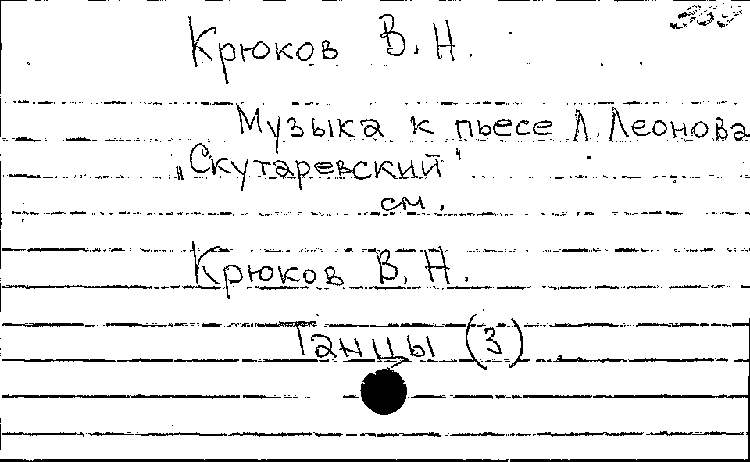 Крюков В. Н.
Музыка к пьесе Л. Леонова
„Скутаревский"
см.
Крюков В. Н.
Танцы (3)